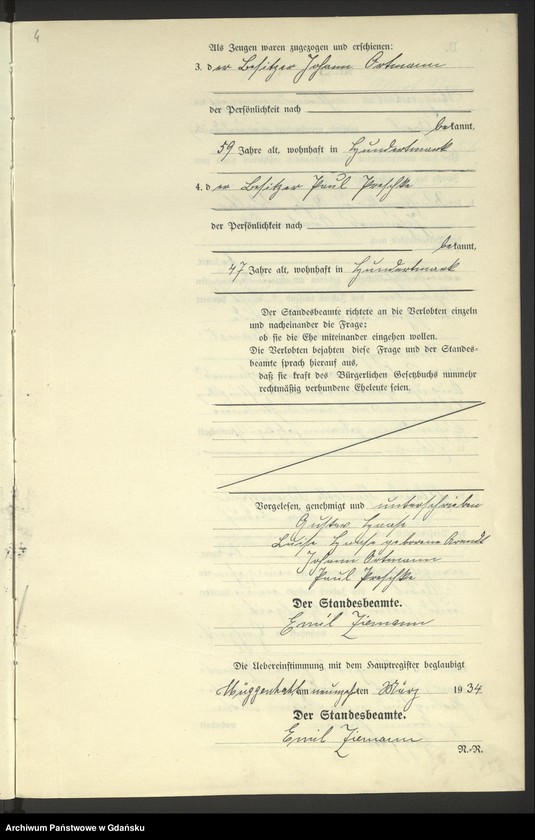 4
Als Zeugen waren zugezogen und erschienen:
3. der Besitzer Johann Ortmann
der Persönlichkeit nach
bekannt,
59 Jahre alt, wohnhaft in Hundertmark
4. der Besitzer Paul Preschke
der Persönlichkeit nach
bekannt,
47 Jahre alt, wohnhaft in Hundertmark
Der Standesbeamte richtete an die Verlobten einzeln
und nacheinander die Frage:
ob sie die Ehe miteinander eingehen wollen.
Die Verlobten bejahten diese Frage und der Standes-
beamte sprach hierauf aus,
daß sie kraft des Bürgerlichen Gesetzbuchs nunmehr
rechtmäßig verbundene Eheleute seien.
Vorgelesen, genehmigt und unterschrieben
Gustav Haase
Luise Haase geborene Arendt
Johann Ortmann
Paul Preschke
Der Standesbeamte.
Emil Ziemann
Die Uebereinstimmung mit dem Hauptregister beglaubigt
Müggenhahl am neunzehnten März 1934
Der Standesbeamte.
Emil Ziemann
R.-R.
Archiwum Państwowe w Gdańsku